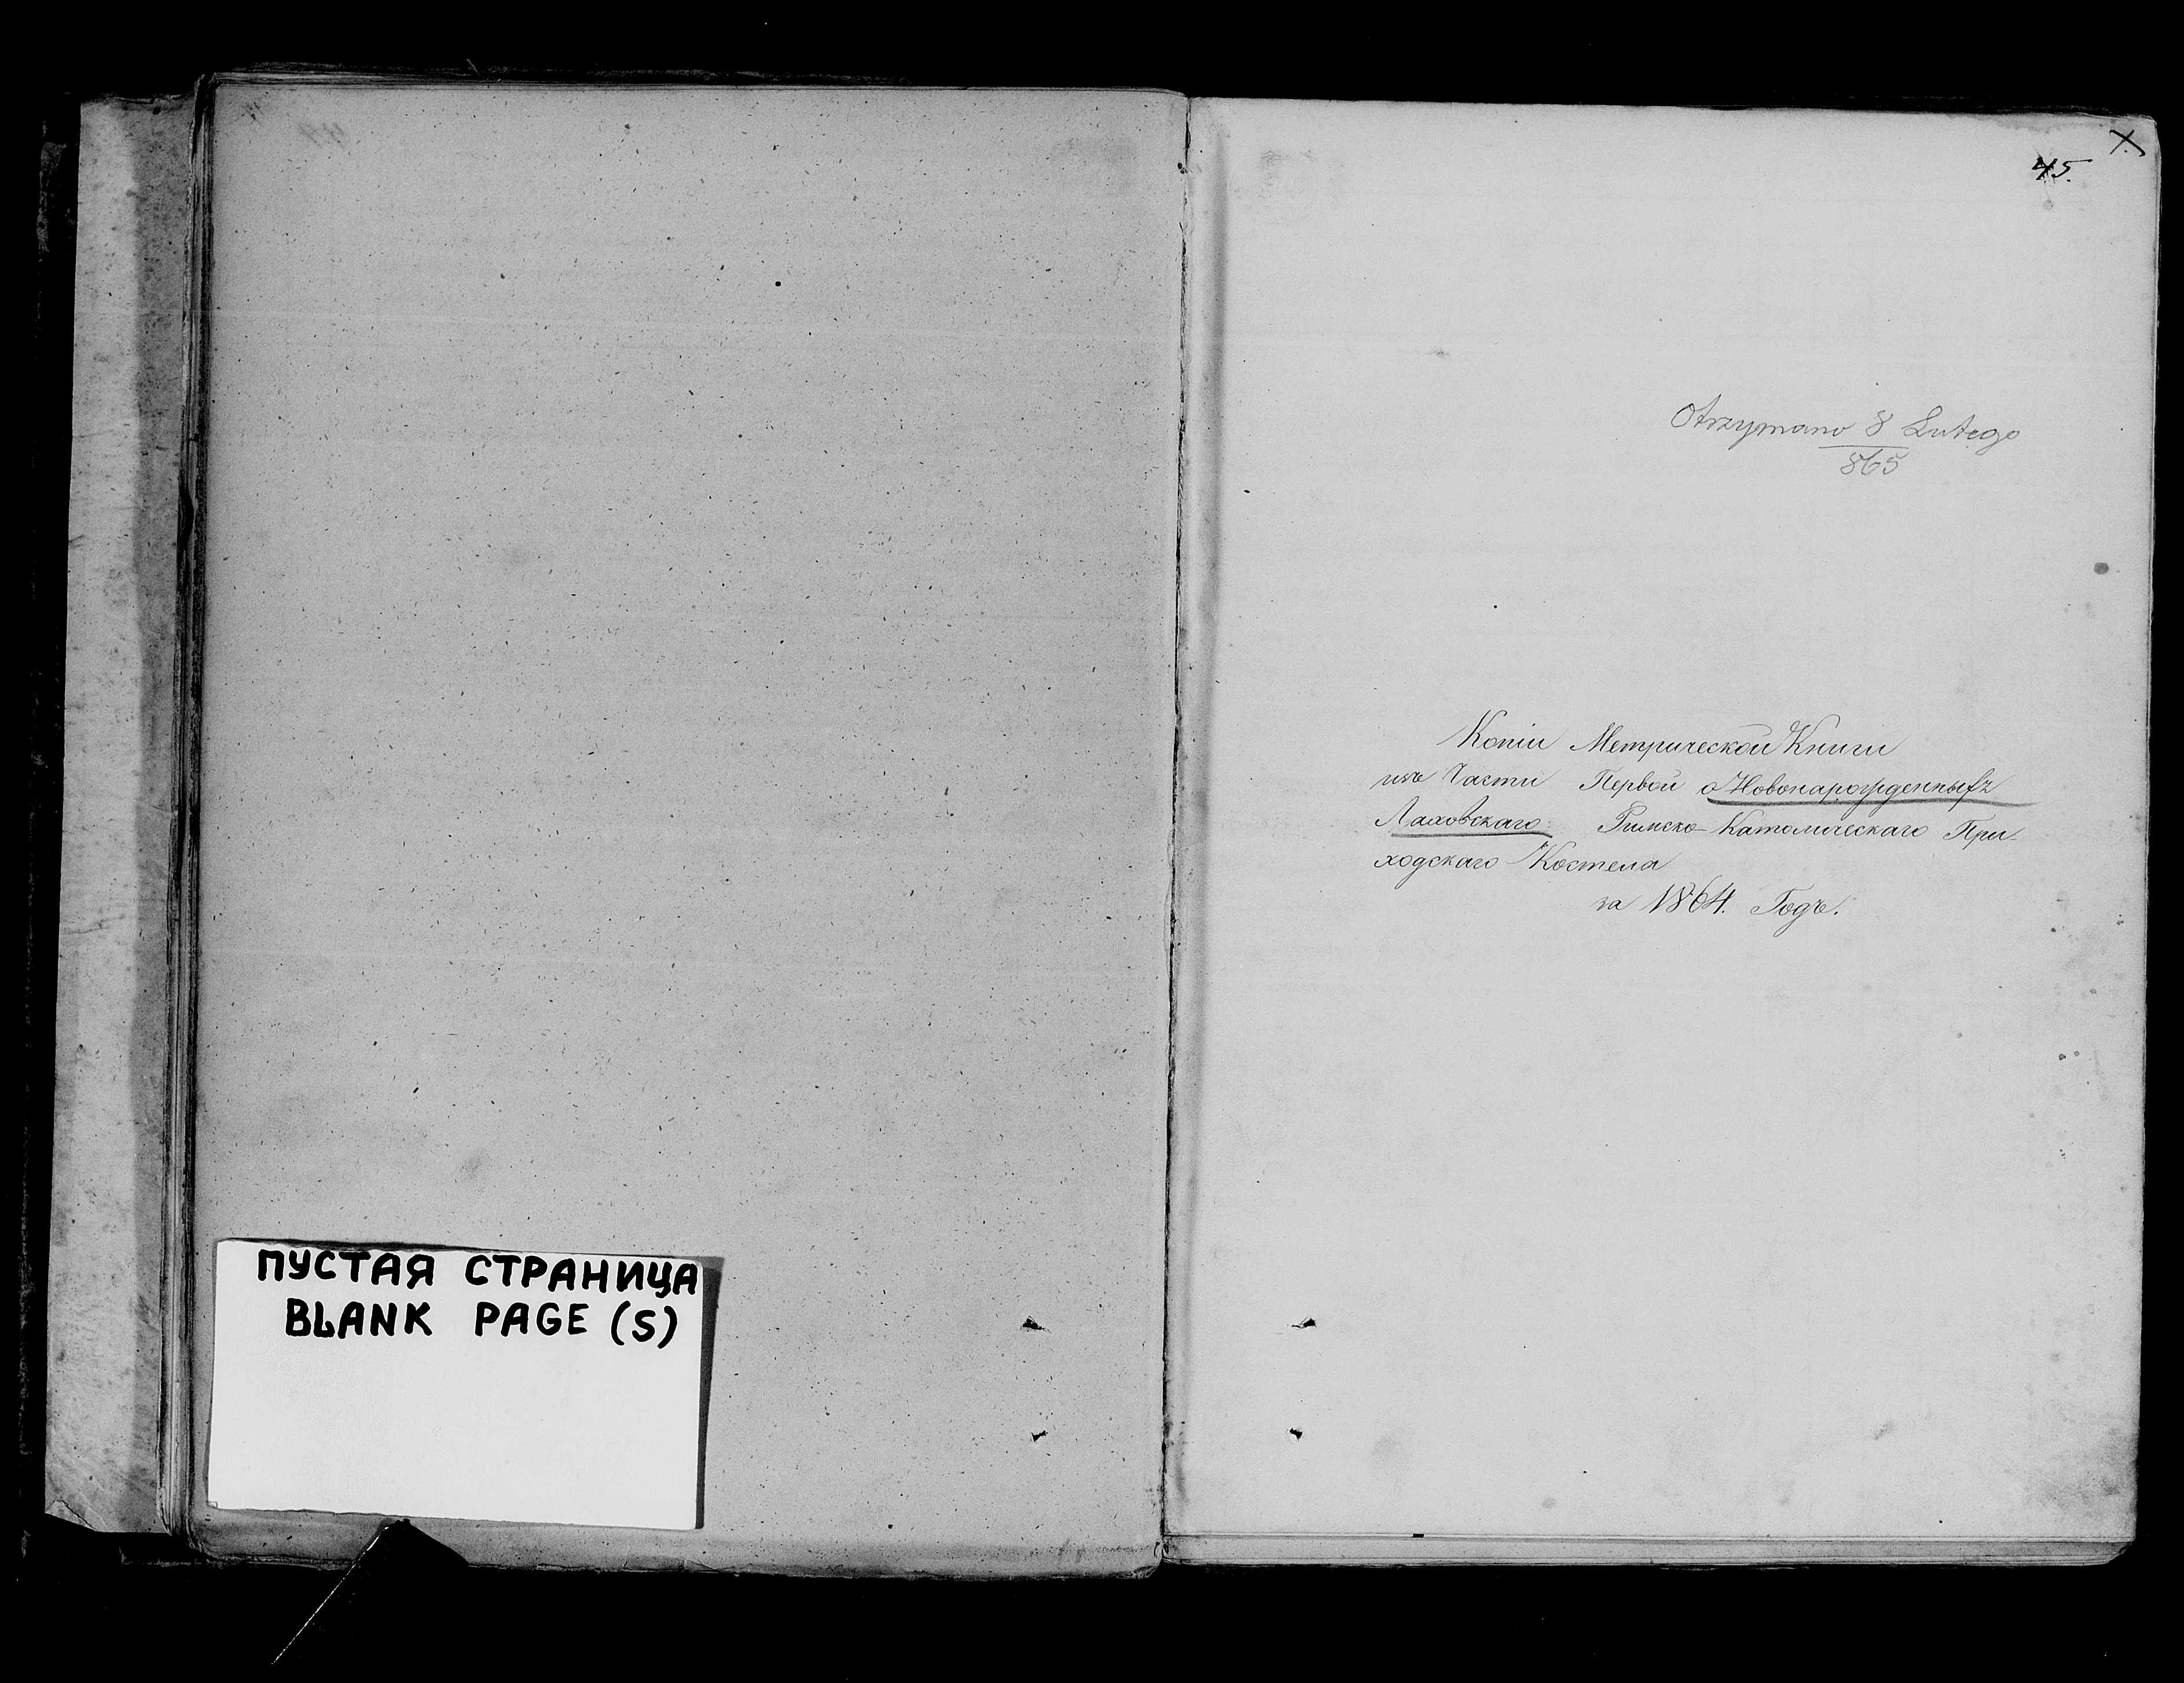 ПУСТАЯ СТРАНИЦА
BLANK PAGE (S)
X
45.
Otrzymano 8 Lutego
865
Копіи Метрической Книги
изъ Части Первой о Новонарожденныхъ
Лаховскаго Римско-Католическаго При-
ходскаго Костела
за 1864. Годъ.